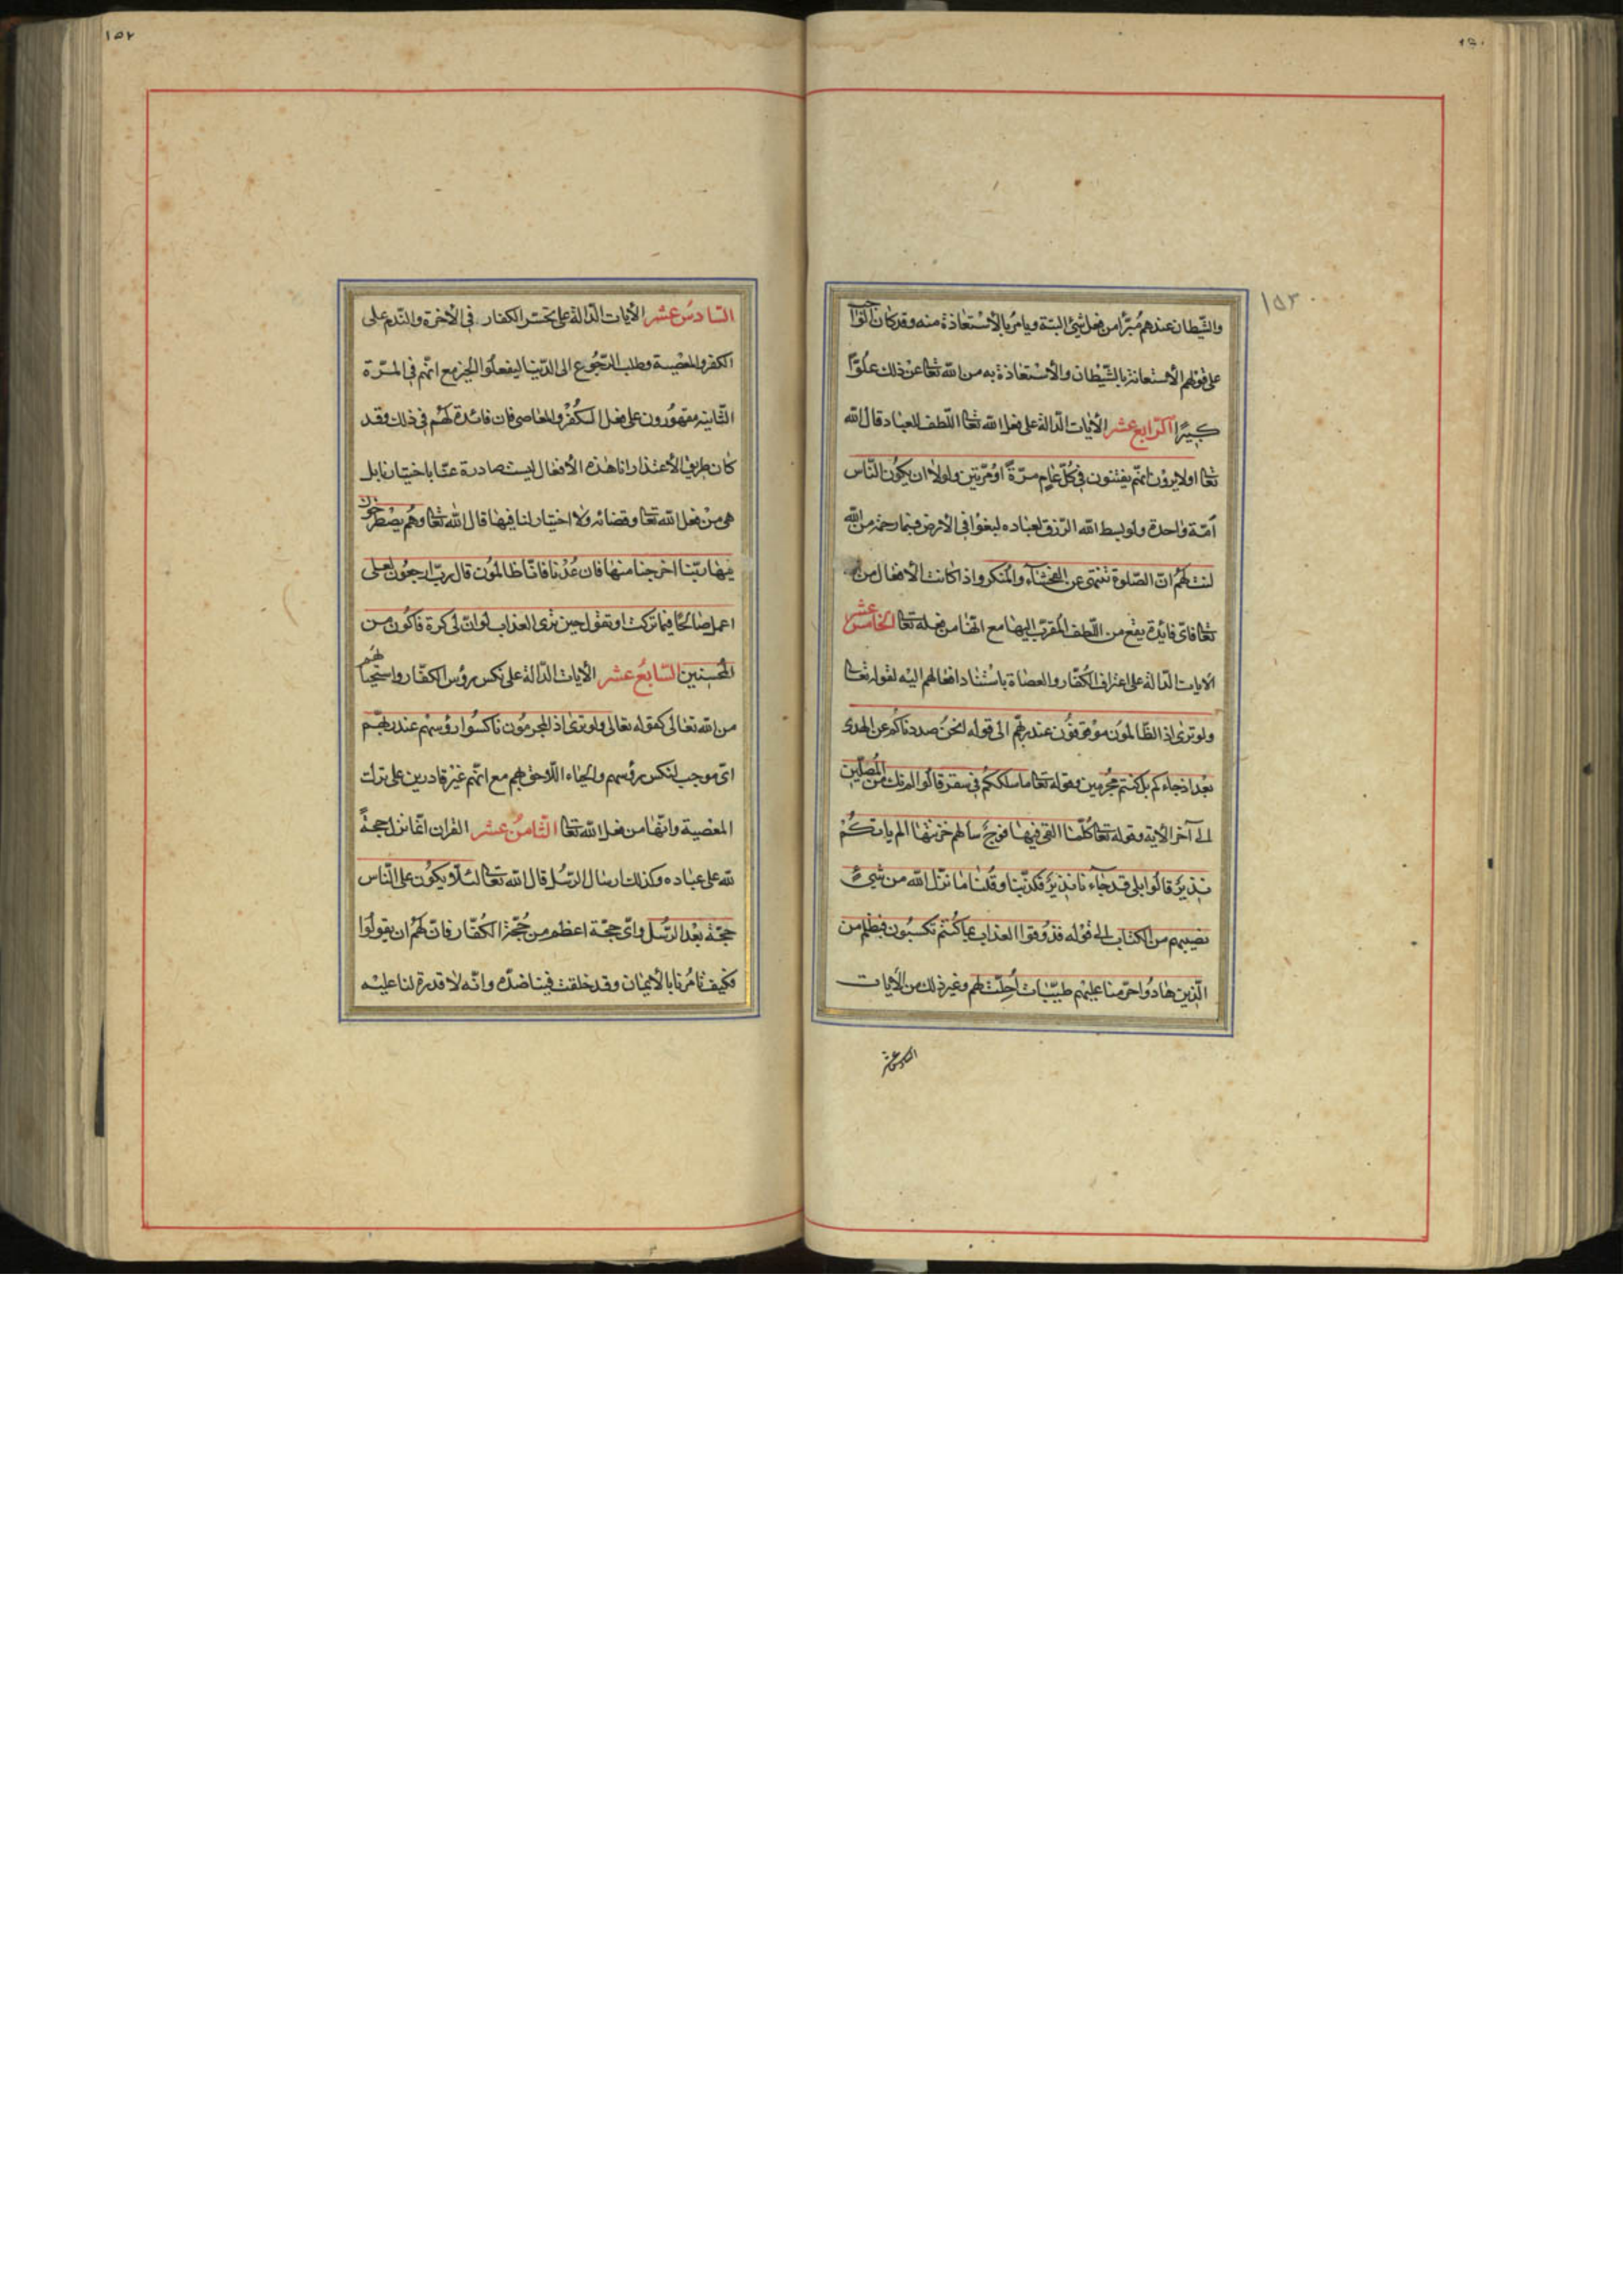 ١٥٢
والشّيطان عندهم مُبرّأ من فعل شئ البتة ويامر بالاستعاذة منه وقد كان الواجب
على قولهم الاستعانة بالشّيطان والاستعاذة به من الله تعا عن ذلك علوّا
كبيرًا الرابع عشر الأيات الدّالة على فعل الله تعا اللّطف للعباد قال الله
تعا اولا يرون انّهم يفتنون في كلّ عام مرّة او مرّتين ولولا ان يكون النّاس
أمّة واحدة ولو بسط الله الرّزق لعباده لبغوا في الأرض فبما رحمة من الله
لنت لهم انّ الصّلوة تنهى عن الفحشاء والمنكر واذا كانت الأفعال من
تعا فاىّ فايدة يقع من اللّطف المقرّب اليها مع انّها من فعله تعا الخامس عشر
الايات الدّالة على اعتراف الكفّار والعصاة باستناد افعالهم اليه لقوله تعا
ولو ترى اذ الظّالمون موقوفون عند ربّهم الى قوله انحن صددناكم عن الهدى
بعد اذ جاءكم بل كنتم مجرمين وقوله تعا ما سلككم في سقر قالوا لم نك من المصلّين
الى آخر الاية وقوله تعا كلّما القى فيها فوج سألهم خزنتها الم ياتكم
نذير قالوا بلى قد جاءنا نذير فكذّبنا وقلنا ما نزّل الله من شئ
نصيبهم من الكتاب الى قوله فذوقوا العذاب بما كنتم تكسبون فبظلم من
الّذين هادوا حرّمنا عليهم طيّبات أحلّت لهم وغير ذلك من الأيات
السادس عشر
١٥٢
السّادس عشر الأيات الدّالة على تحسّر الكفار في الأخرة والنّدم على
الكفر والمعصية وطلب الرّجوع الى الدّنيا ليفعلوا الخير مع انّهم في المرّة
الثّانية مقهورون على فعل الكفر والمعاصى فان فائدة لهم في ذلك وقد
كان طريق الأعتذار انا هذه الأفعال ليست صادرة عنّا باختيارنا بل
هي من فعل الله تعا وقضائه ولا اختيار لنا فيها قال الله تعا وهم يصطرخون
فيها ربّنا اخرجنا منها فان عدنا فانّا ظالمون قال ربّ ارجعون لعلى
اعمل صالحًا فيما تركت او تقول حين ترى العذاب لو انّ لى كرة فاكون من
المحسنين السّابع عشر الأيات الدّالة على نكس رؤس الكفّار واستحيائهم
من الله تعالى كقوله تعالى ولو ترى اذ المجرمون ناكسوا رؤسهم عند ربّهم
اىّ موجب لنكس رؤسهم والحياء اللّاحق بهم مع انّهم غير قادرين على ترك
المعصية وانّها من فعل الله تعا الثّامن عشر القران انّما نزل حجةً
لله على عباده وكذلك ارسال الرّسل قال الله تعا لئلّا يكون على النّاس
حجّة بعد الرّسل واىّ حجّة اعظم من حجّة الكفّار فانّ لهم ان يقولوا
فكيف تامرنا بالأيمان وقد خلقت فينا ضدّه وانّه لا قدرة لنا عليه